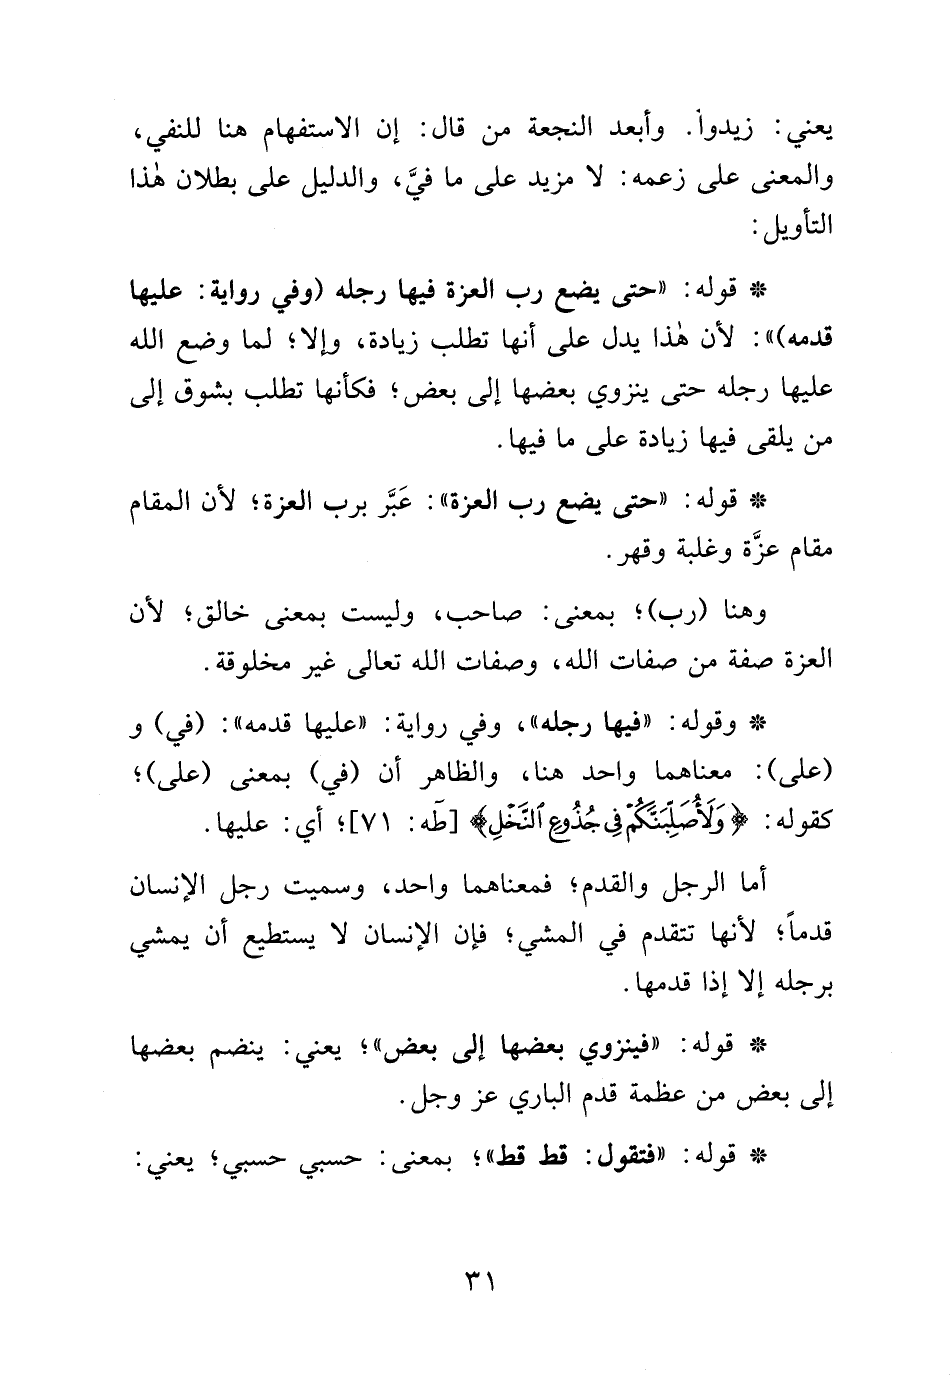 يعني: زيدوا. وأبعد النجعة من قال: إن الاستفهام هنا للنفي،
والمعنى على زعمه: لا مزيد على ما فيَّ، والدليل على بطلان هٰذا
التأويل:
* قوله: «حتى يضع رب العزة فيها رجله (وفي رواية: عليها
قدمه)»: لأن هٰذا يدل على أنها تطلب زيادة، وإلا؛ لما وضع الله
عليها رجله حتى ينزوي بعضها إلى بعض؛ فكأنها تطلب بشوق إلى
من يلقى فيها زيادة على ما فيها.
* قوله: «حتى يضع رب العزة»: عَبَّر برب العزة؛ لأن المقام
مقام عزَّة وغلبة وقهر.
وهنا (رب)؛ بمعنى: صاحب، وليست بمعنى خالق؛ لأن
العزة صفة من صفات الله، وصفات الله تعالى غير مخلوقة.
* وقوله: «فيها رجله»، وفي رواية: «عليها قدمه»: (في) و
(على): معناهما واحد هنا، والظاهر أن (في) بمعنى (على)؛
كقوله: ﴿وَلَأُصَلِّبَنَّكُمْ فِي جُذُوعِ ٱلنَّخْلِ﴾ [طه: ٧١]؛ أي: عليها.
أما الرجل والقدم؛ فمعناهما واحد، وسميت رجل الإنسان
قدماً؛ لأنها تتقدم في المشي؛ فإن الإنسان لا يستطيع أن يمشي
برجله إلا إذا قدمها.
* قوله: «فينزوي بعضها إلى بعض»؛ يعني: ينضم بعضها
إلى بعض من عظمة قدم الباري عز وجل.
* قوله: «فتقول: قط قط»؛ بمعنى: حسبي حسبي؛ يعني:
٣١